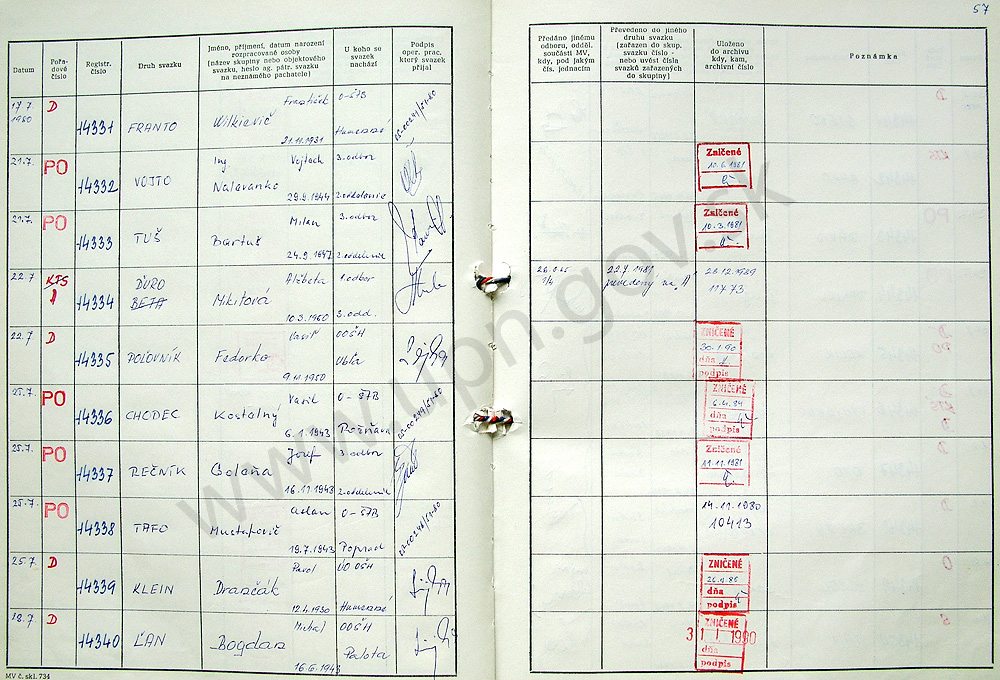 57
Datum
Pořadové číslo
Registr. číslo
Druh svazku
Jméno, příjmení, datum narození
rozpracované osoby
(název skupiny nebo objektového
svazku, heslo ag. pátr. svazku
na neznámého pachatele)
U koho se
svazek
nachází
Podpis
oper. prac.
který svazek
přijal
Předáno jinému
odboru, odděl.
součásti MV,
kdy, pod jakým
čís. jednacím
Převedeno do jiného
druhu svazku
(zařazen do skup.
svazku číslo -
nebo uvést čísla
svazků zařazených
do skupiny)
Uloženo
do archivu
kdy, kam,
archivní číslo
Poznámka
17.7. 1980 D 14331 FRANTO František Wilkievič 21.11.1931 O-ŠTB Humenné
21.7. PO 14332 VOJTO Ing Vojtech Nalevanko 29.9.1944 3. odbor 2. oddelenie
Zničené 10.6.1981
21.7. PO 14333 TUŠ Milan Bartuš 24.9.1947 3. odbor 2. oddelenie
Zničené 10.3.1981
22.7 KTS 1 14334 ĎURO BETA Alžbeta Mkitová 10.3.1960 1. odbor 3. odd.
22.7.1981 prevedený na A
28.12.1989 11773
22.7 D 14335 POĽOVNÍK Fedorko 9.11.1950 OOŠH Ubľa
ZNIČENÉ 30.1.90 dňa podpis
25.7. PO 14336 CHODEC Vasil Kostelný 6.1.1943 O-ŠTB Rožňava
ZNIČENÉ dňa podpis
25.7. PO 14337 REČNÍK Jozef Goleňa 16.11.1943 3. odbor 2. oddelenie
Zničené 11.11.1981
25.7. PO 14338 TAFO Mustafovič 19.7.1943 O-ŠTB Poprad
14.11.1980 10413
25.7. D 14339 KLEIN Pavol Drančák 12.4.1930 OO OŠH Humenné
ZNIČENÉ dňa podpis
18.7 D 14340 ĽAN Michal Bogdan 16.6.1943 OOŠH Palota
ZNIČENÉ 31 1 1990 dňa podpis
MV č. skl. 734
www.upn.gov.sk